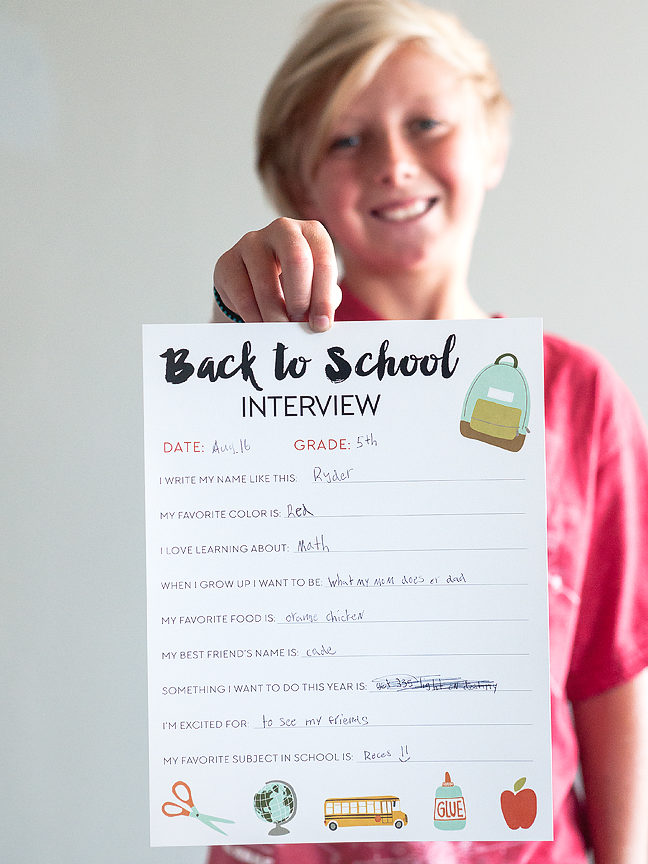 Back to School
INTERVIEW
DATE: Aug. 16 GRADE: 5th
I WRITE MY NAME LIKE THIS: Ryder
MY FAVORITE COLOR IS: Red
I LOVE LEARNING ABOUT: Math
WHEN I GROW UP I WANT TO BE: What my mom does or dad
MY FAVORITE FOOD IS: orange chicken
MY BEST FRIEND'S NAME IS: cade
SOMETHING I WANT TO DO THIS YEAR IS: get 335 light on destiny
I'M EXCITED FOR: to see my friends
MY FAVORITE SUBJECT IN SCHOOL IS: Reces !!
GLUE